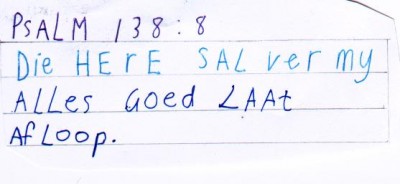 PSALM 138:8
Die HERE SAL ver my
ALLes Goed LAAt
AFLoop.